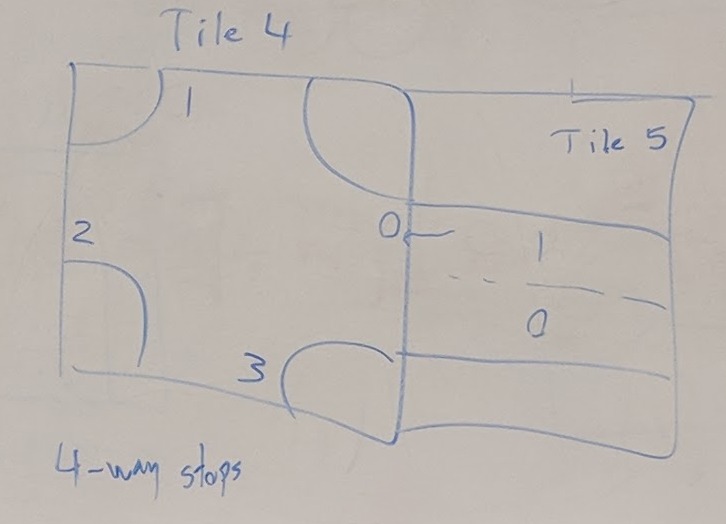 Tile 4
1
Tile 5
2
0
1
0
3
4-way stops